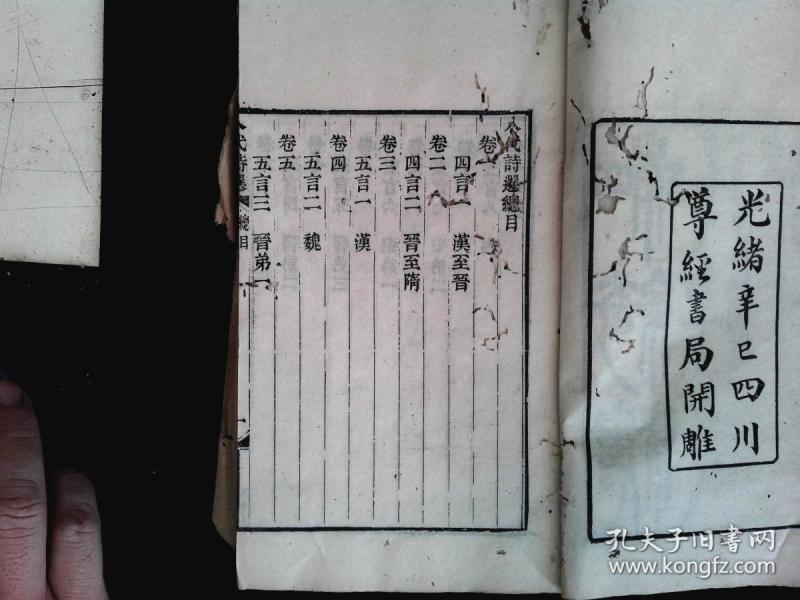 光緒辛巳四川
尊經書局開雕
八代詩選總目
卷一
四言一 漢至晉
卷二
四言二 晉至隋
卷三
五言一 漢
卷四
五言二 魏
卷五
五言三 晉弟一
八代詩選 總目
孔夫子旧书网
www.kongfz.com